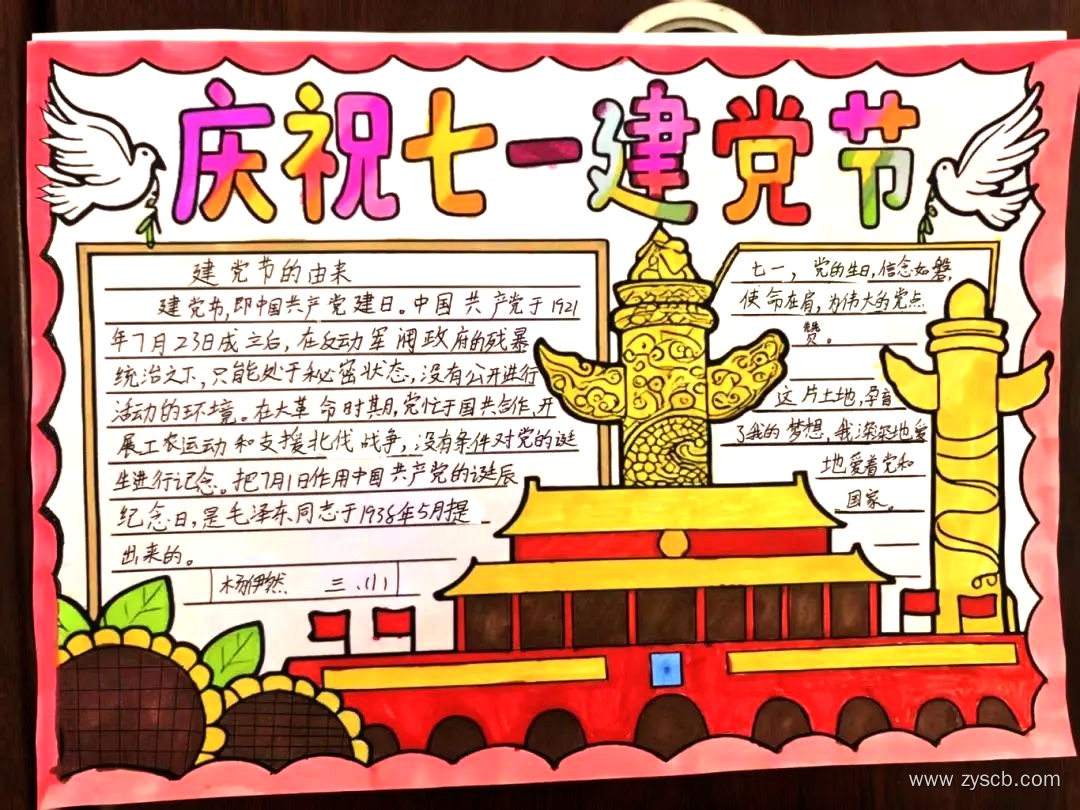 庆祝七一建党节
建党节的由来
建党节,即中国共产党建日。中国共产党于1921
年7月23日成立后,在反动军阀政府的残暴
统治之下,只能处于秘密状态,没有公开进行
活动的环境。在大革命时期,党忙于国共合作,开
展工农运动和支援北伐战争,没有条件对党的诞
生进行记念。把7月1日作用中国共产党的诞辰
纪念日,是毛泽东同志于1938年5月提
出来的。
杨伊然 三、(1)
七一,党的生日,信念如磐,
使命在肩,为伟大的党点
赞。
这片土地,孕育
了我的梦想,我深深地爱
地爱着党和
国家。
www.zyscb.com